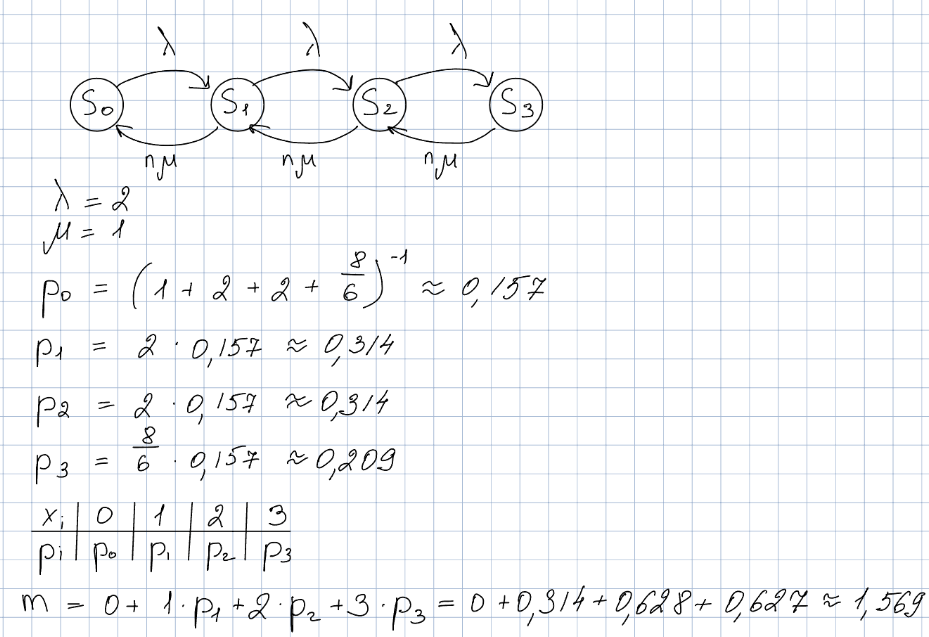 λ λ λ
S₀ S₁ S₂ S₃
nμ nμ nμ
λ = 2
μ = 1
p₀ = (1 + 2 + 2 + 8/6)⁻¹ ≈ 0,157
p₁ = 2 · 0,157 ≈ 0,314
p₂ = 2 · 0,157 ≈ 0,314
p₃ = 8/6 · 0,157 ≈ 0,209
xᵢ | 0 | 1 | 2 | 3
pᵢ | p₀ | p₁ | p₂ | p₃
m = 0 + 1·p₁ + 2·p₂ + 3·p₃ = 0 + 0,314 + 0,628 + 0,627 ≈ 1,569